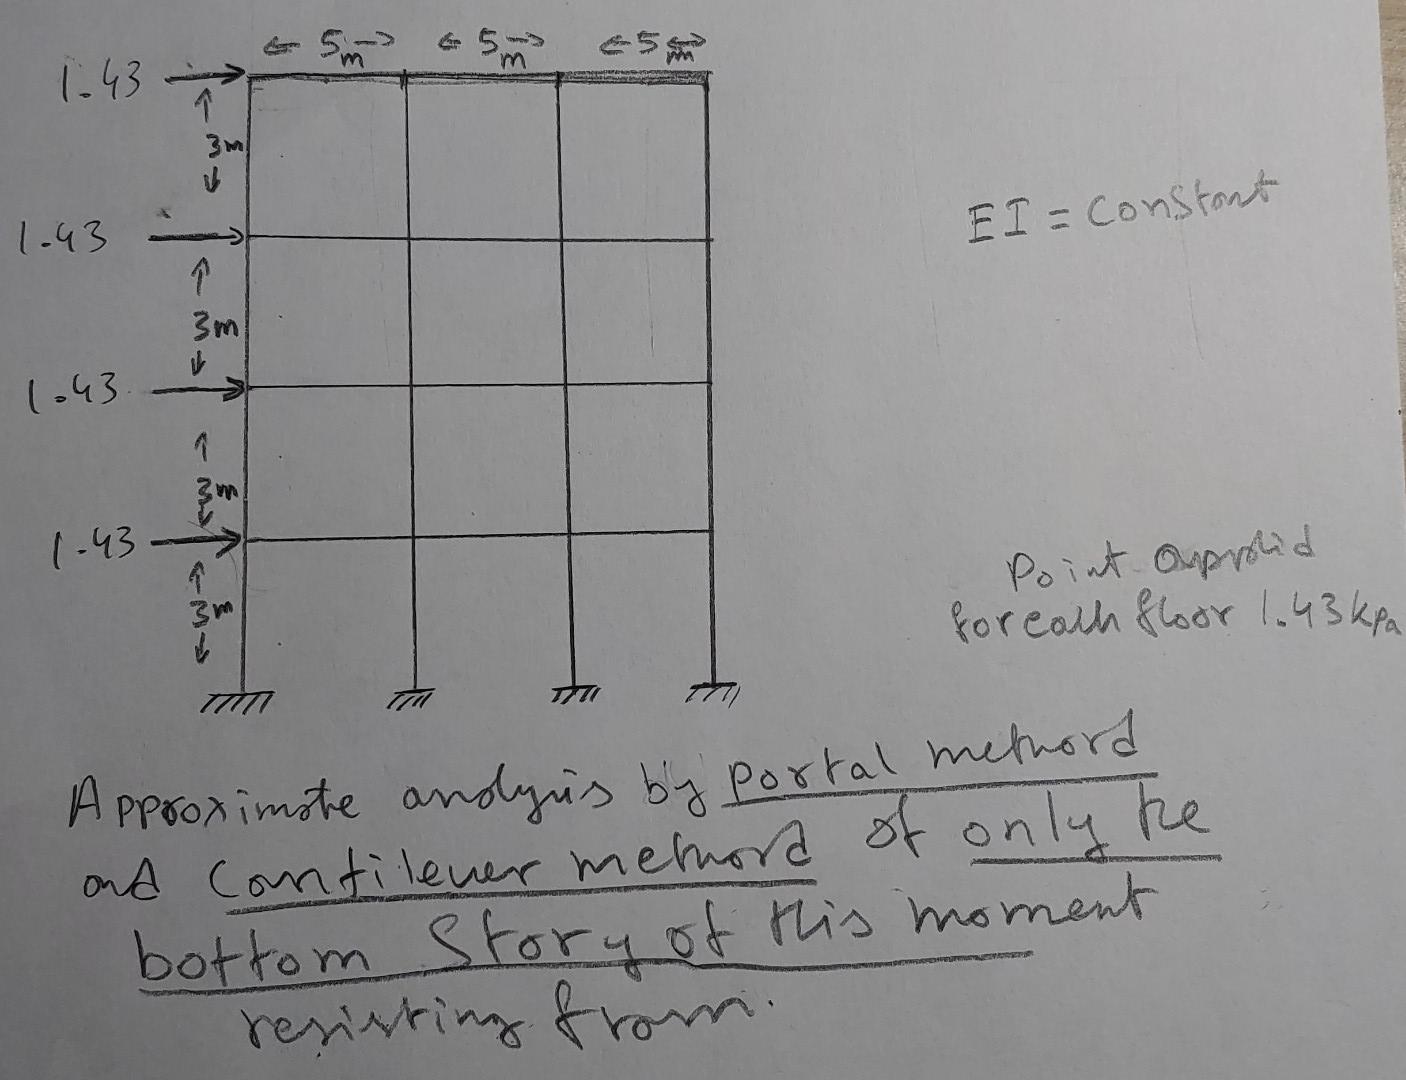 ← 5m → ← 5m → ← 5m →
1.43
3m
1.43
EI = Constant
3m
1.43
3m
1.43
Point
for each floor 1.43 kpa
3m
Approximate analysis by portal methord
and Cantilever methord of only the
bottom Story of this moment
resisting fram.